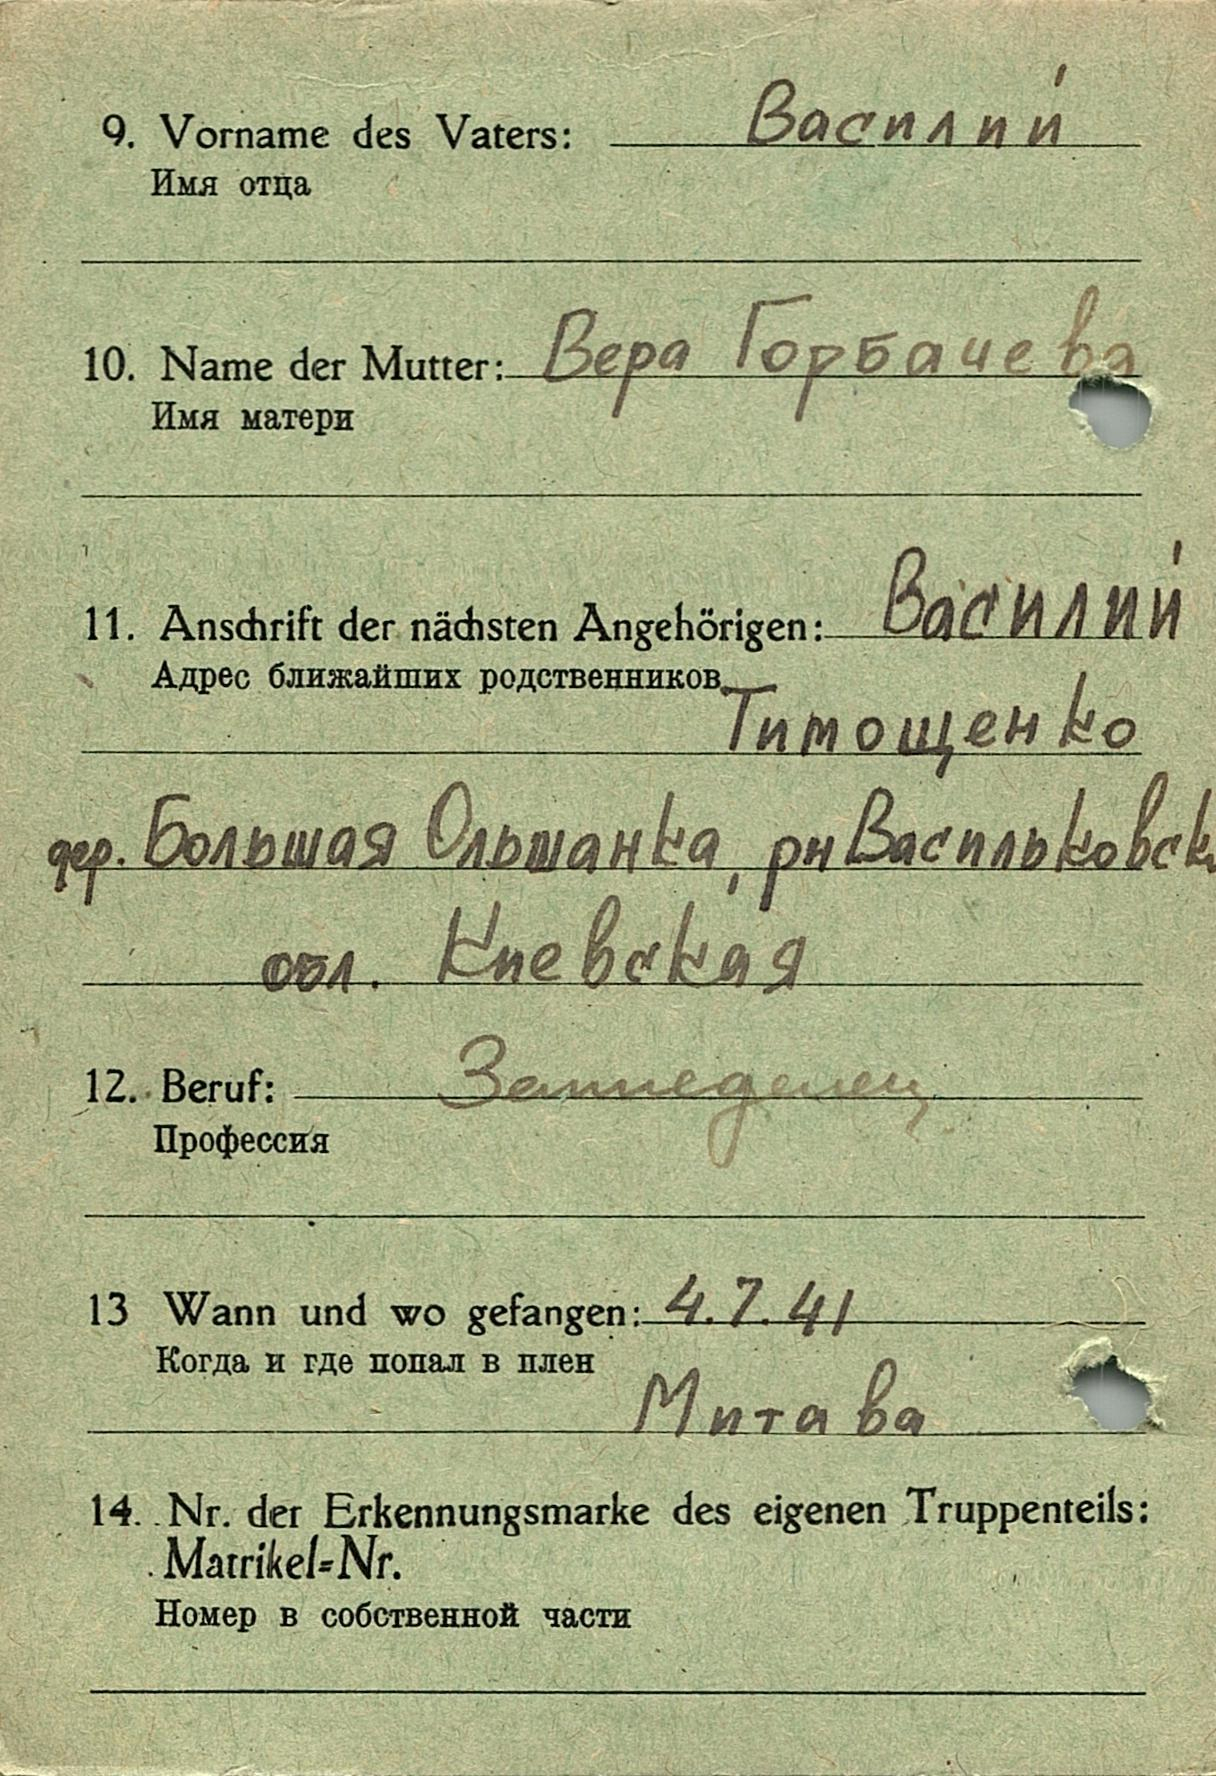 9. Vorname des Vaters: Василий
Имя отца
10. Name der Mutter: Вера Горбачева
Имя матери
11. Anschrift der nächsten Angehörigen: Василий
Адрес ближайших родственников
Тимощенко
дер. Большая Ольшанка, рн Васильковск
обл. Киевская
12. Beruf: Земледелец
Профессия
13 Wann und wo gefangen: 4.7.41
Когда и где попал в плен
Митава
14. Nr. der Erkennungsmarke des eigenen Truppenteils:
Matrikel=Nr.
Номер в собственной части